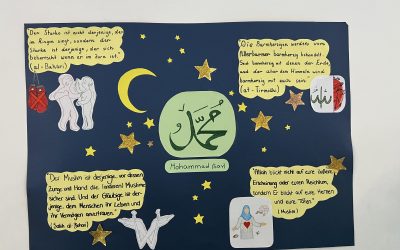 „Der Starke ist nicht derjenige, der
im Ringen siegt, sondern der
Starke ist derjenige, der sich
beherrscht wenn er in Wut ist."
(al-Bukhari)
„Die Barmherzigen werden vom
Allerbarmer barmherzig behandelt.
Seid barmherzig zu denen der Erde,
und der über dem Himmeln wird
barmherzig mit euch sein."
(at-Tirmidhi)
محمد
Mohammad (sav)
"Der Muslim ist derjenige, vor dessen
Zunge und Hand die (anderen) Muslime
sicher sind. Und der Gläubige ist der-
jenige, dem Menschen ihr Leben und
ihr Vermögen anvertrauen."
"Allah blickt nicht auf eure äußere
Erscheinung oder euren Reichtum,
sondern Er blickt auf eure Herzen
und eure Taten."
(Muslim)